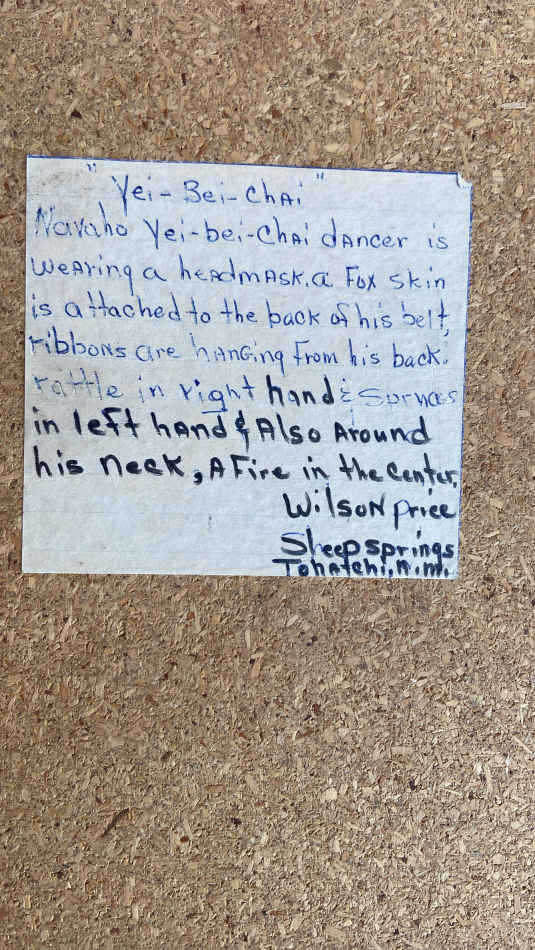 "Yei-Bei-ChAi"
Navaho Yei-bei-ChAi dAncer is
weAring a heAdmAsk. a Fox skin
is attached to the back of his belt,
ribbons are hAnGing from his back.
rattle in right hand & Spruces
in left hAnd & Also Around
his neck, A Fire in the Center.
Wilson Price
Sheep springs
TohAtchi, n.m.